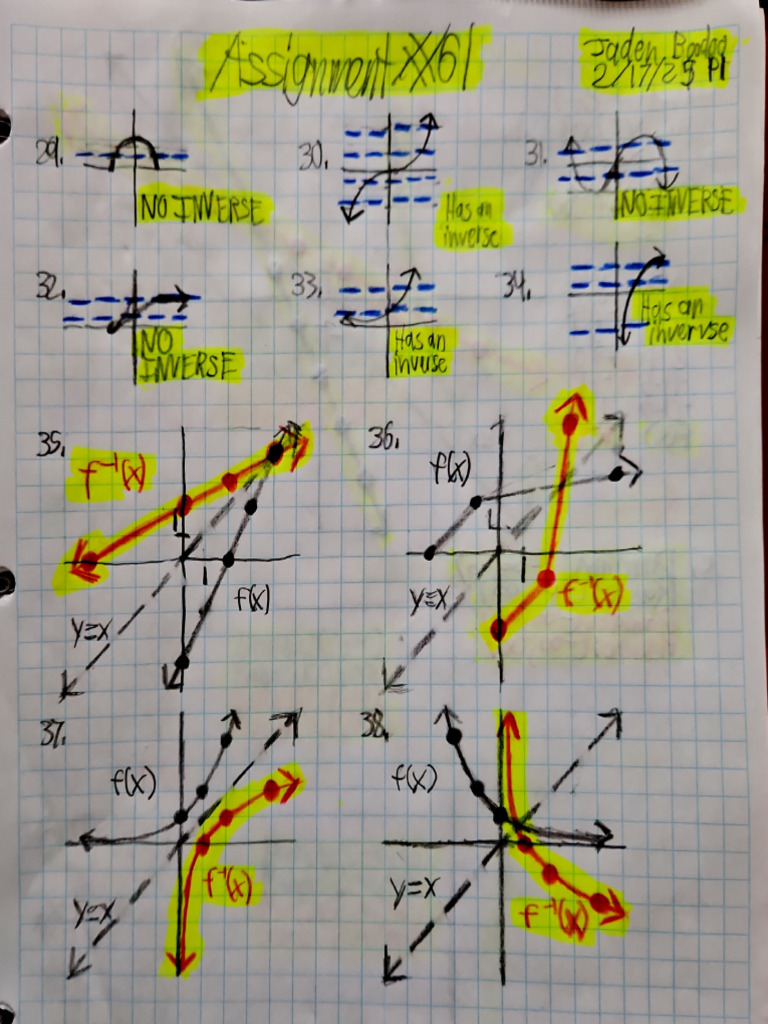 Assignment XX61
Jaden
2/17/25 P1
29.
NO INVERSE
30.
Has an
inverse
31.
NO INVERSE
32.
NO
INVERSE
33.
Has an
inverse
34.
Has an
invervse
35.
f⁻¹(x)
1
1
f(x)
y=x
36.
f(x)
1
1
f⁻¹(x)
y=x
37.
f(x)
f⁻¹(x)
y=x
38.
f(x)
y=x
f⁻¹(x)